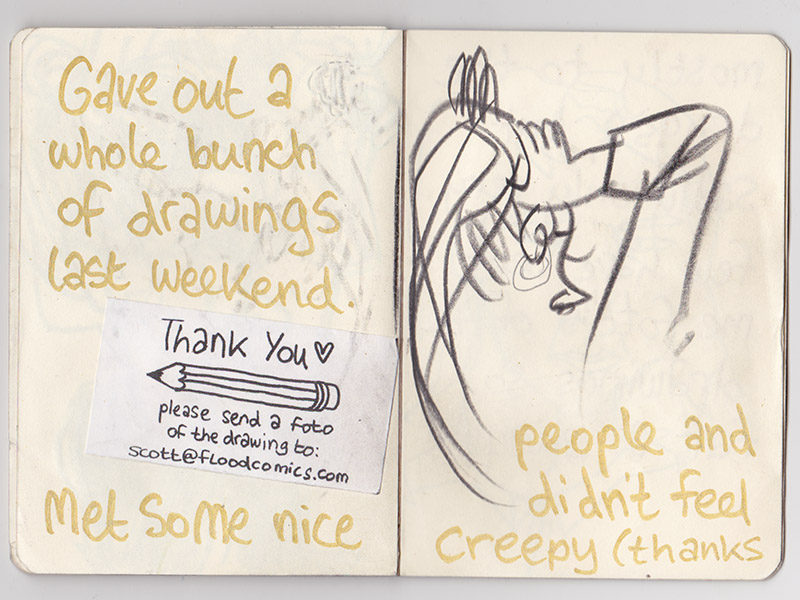 Gave out a
whole bunch
of drawings
last weekend.
Thank You
please send a foto
of the drawing to:
scott@floodcomics.com
Met some nice
people and
didn't feel
creepy (thanks